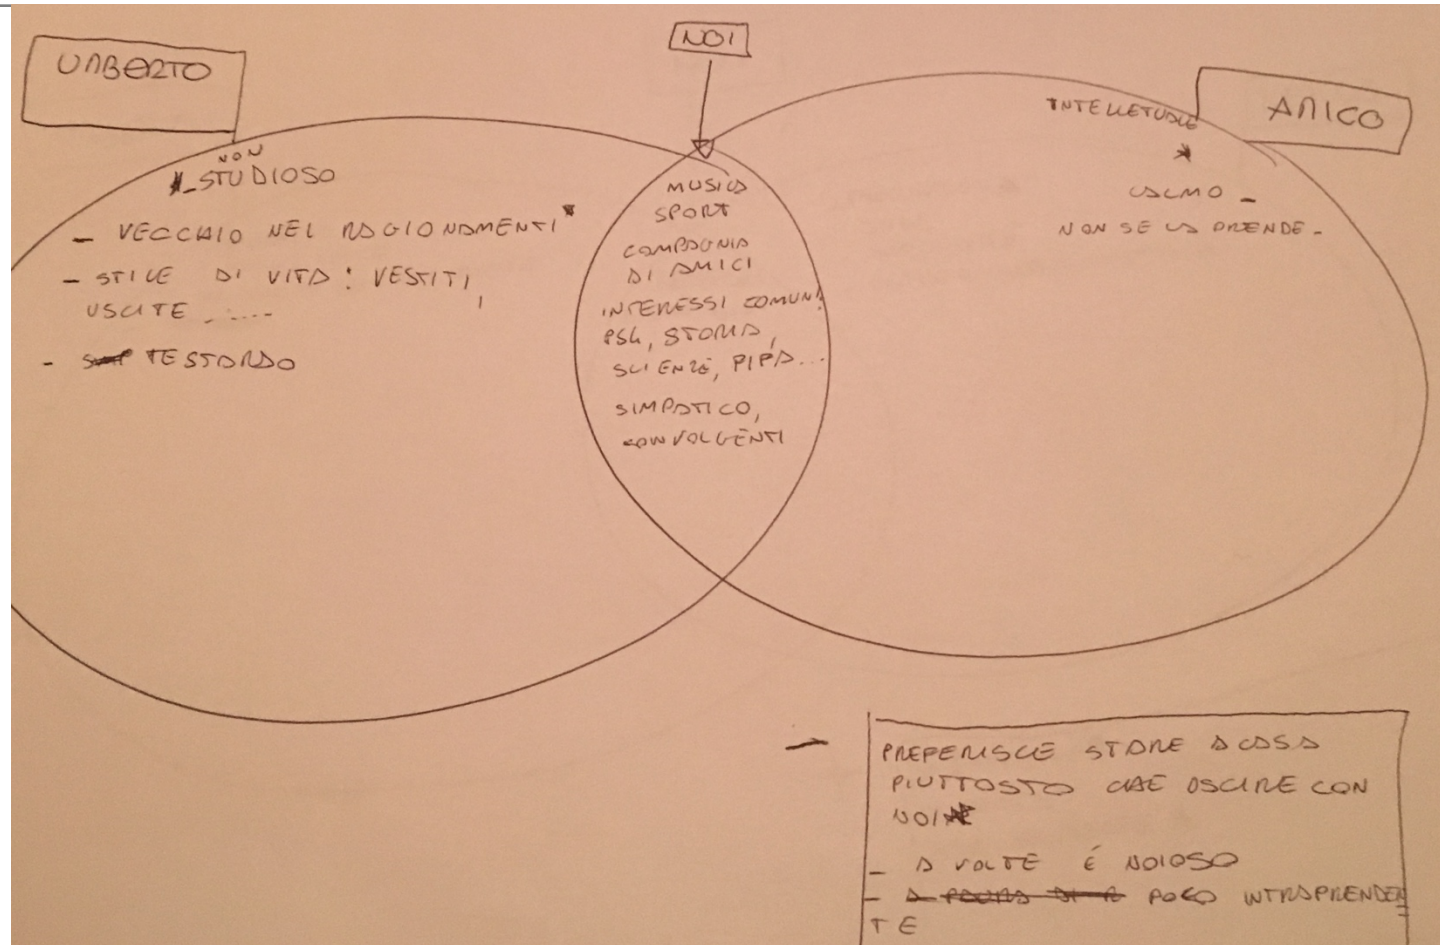 UMBERTO
NOI
AMICO
NON
STUDIOSO
- VECCHIO NEL RAGIONAMENTI*
- STILE DI VITA: VESTITI,
USCITE, ....
- TESTARDO
MUSICA
SPORT
COMPAGNIA
DI AMICI
INTERESSI COMUNI:
PSI, STORIA,
SCIENZE, PIPA...
SIMPATICO,
CONVOLGENTI
INTELLETUALE
*
CALMO -
NON SE LA PRENDE -
- PREFERISCE STARE A CASA
PIUTTOSTO CHE USCIRE CON
NOI*
- A VOLTE É NOIOSO
- A PAURA DI POCO INTRAPRENDEN
TE